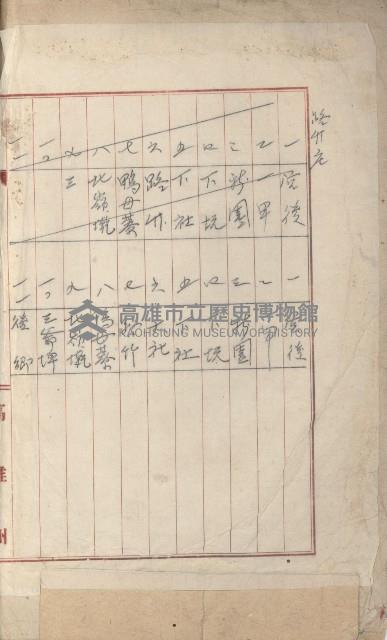 路竹庄
一 店後
二 一甲
三 新園
四 下坑
五 下社
六 路竹
七 鴨母藔
八 北嶺墘
九 三
一〇
一一
一 店後
二 一甲
三 新園
四 下坑
五 下社
六 社
七 竹
八 鴨母藔
九 北嶺墘
一〇 三爺埤
一一 後鄉
高雄市立歷史博物館
KAOHSIUNG MUSEUM OF HISTORY
高雄州